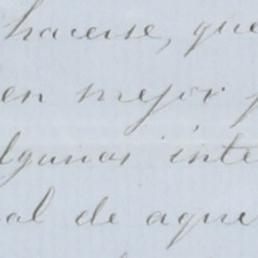 hacerse, que
en mejor p
lgunas inte
al de aque